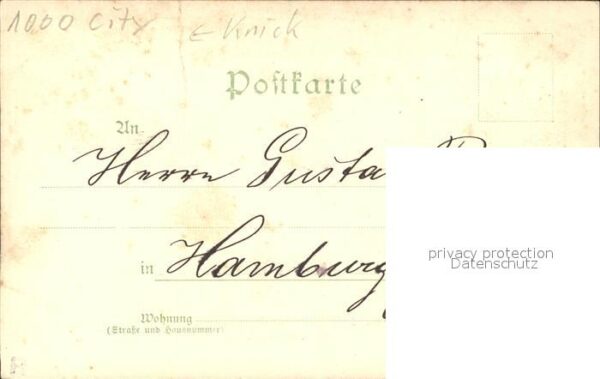 1000 City ← Knick
Postkarte
An
Herrn Gusta
in Hamburg
Wohnung
(Straße und Hausnummer)
privacy protection
Datenschutz